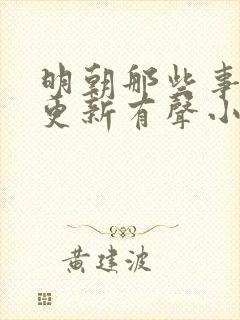 明朝那些事
更新有聲小
黃建波